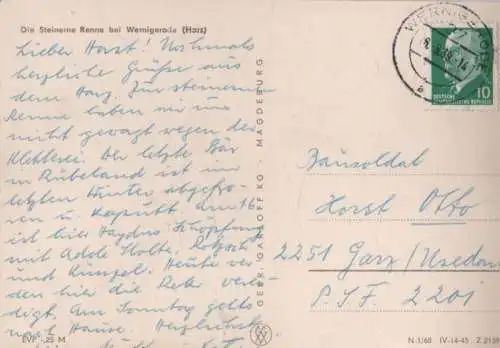 Die Steinerne Renne bei Wernigerode (Harz)
Lieber Horst! Nochmals
herzliche Grüße aus
dem Harz. Zur steinernen
Renne haben wir uns
nicht gewagt wegen der
Kletterei. Der letzte Bär
in Rübeland ist im
letzten Winter
kaputt. Am 16.
ist hier Haydns Schöpfung
mit Adele Stolte,
und Kunzel. Heute
den hier die
Am Sonntag gehts
nach Hause. Herzlichst
EVP -,25 M
GEBR. GARLOFF KG · MAGDEBURG
WERNIGERODE
DEUTSCHE
10
Bausoldat
Horst Otto
2251 Garz/Usedom
P.S.F. 2201
N 1/68 IV-14-45